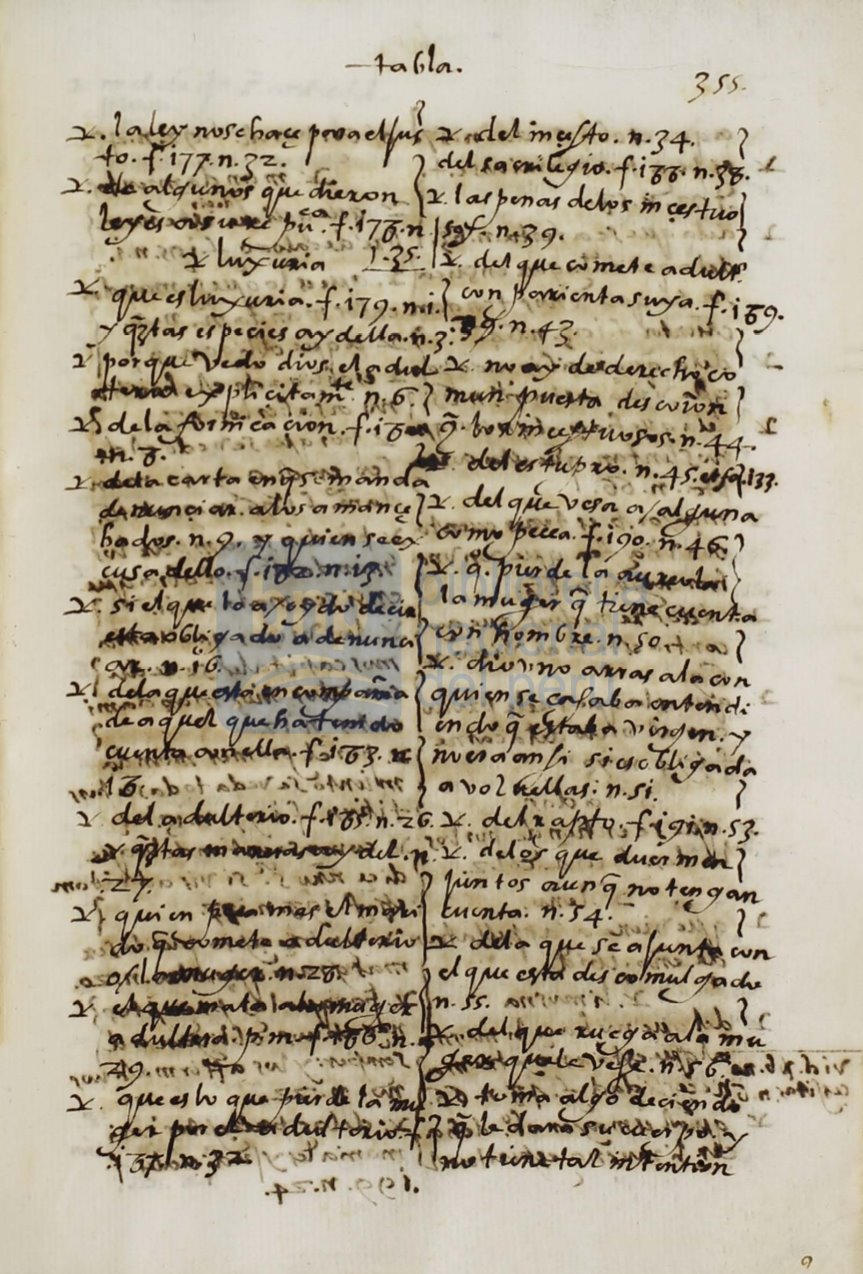 tabla.
355.
la ley nose haçe para el jus
to. f. 177. n. 32.
de algunos que dieron
leyes f. 178. n
35.
luxuria
que es luxuria. f. 179. n. 1.
y q̃tas especies ay della. n. 3.
porque vedo dios el adul
terio explicitamte. n. 6.
de la fornicacion. f. 18
n. 8.
de la carta en q̃ se manda
denunciar. a los amançe
bados. n. 9. y quien se ex
cusa dello. f. 182. n. 13.
si el que lo a oydo decir
esta obligado a denunci
ar. n. 16.
de la que esta en compañia
de aquel que ha tenido
cuenta con ella. f. 183. n
18.
del adulterio. f. 185. n. 26.
y q̃tas maneras ay del. n
27.
quien peca mas el mari
do q̃ comete adulterio
o la muger. n. 28.
el que mata la muger
adultera. f. 186. n.
29.
que es lo que pierde la mu
ger por el adulterio. f
187. n. 32
del incesto. n. 34.
del sacrilegio. f. 188. n. 38.
las penas de los incestuo
sos. n. 39.
del que comete adulte.
con parienta suya. f. 189.
n. 43.
no ay de derecho co
mun puesta descomon
q̃. los incestuosos. n. 44.
del estupro. n. 45. 133.
del que vesa a alguna
como peca. f. 190. n. 46.
q. pierde la
la muger q̃ tiene cuenta
con hombre. n. 50.
dio uno arras a la con
quien se casaba entendi
endo q̃ estaba virgen. y
no era ansi si es obligada
a volvellas. n. 51.
del rapto. f. 191. n. 53.
de los que duermen
juntos aunq̃ no tengan
cuenta. n. 54.
de la que se ajunta con
el que esta descomulgado
n. 55.
del que ruega a la mu
ger que le vese. n. 56.
toma algo deciendo
q̃ le dara su cuerpo. y
no tiene tal intention